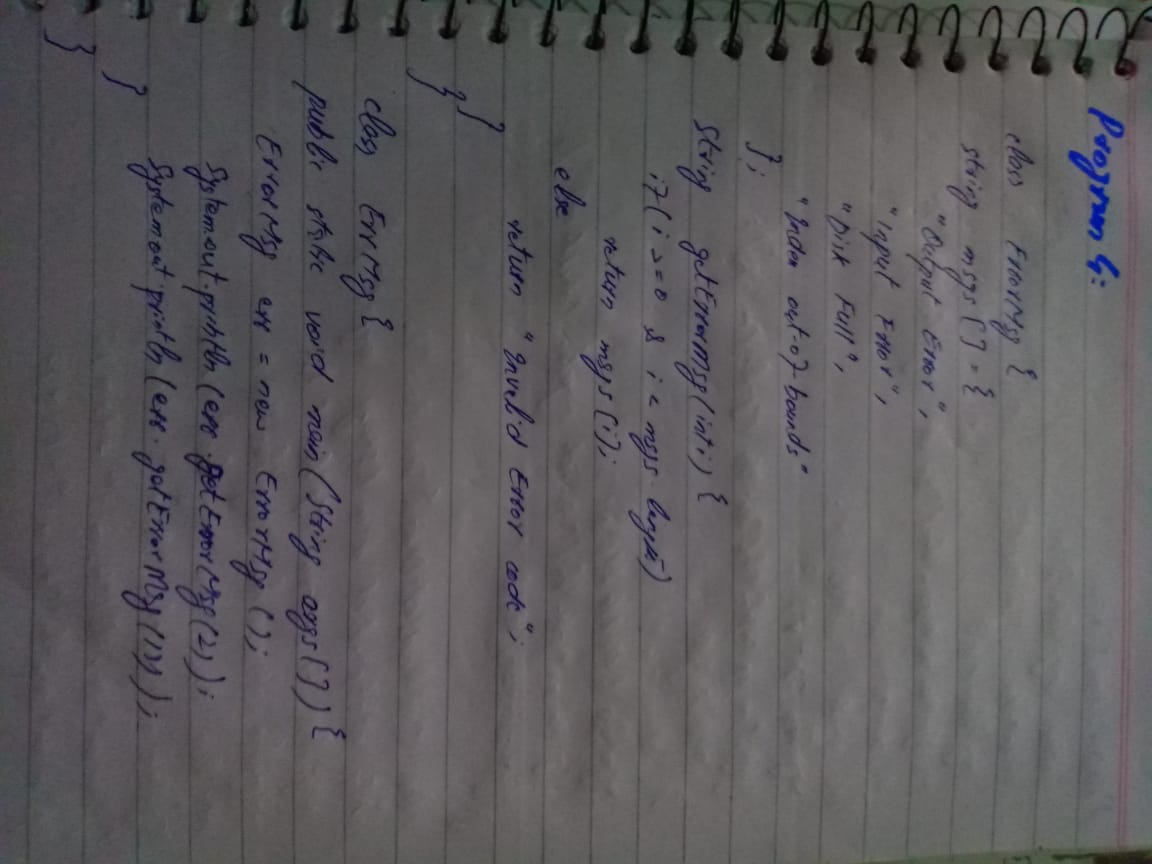 Program 5:
class ErrorMsg {
String msgs[] = {
"Output Error",
"Input Error",
"Disk Full",
"Index out-of-bounds"
};
String getErrorMsg(int i) {
if(i >=0 & i < msgs.length)
return msgs[i];
else
return "Invalid Error code";
}
}
class ErrMsg {
public static void main(String args[]) {
ErrorMsg err = new ErrorMsg();
System.out.println(err.getErrorMsg(2));
System.out.println(err.getErrorMsg(19));
}
}